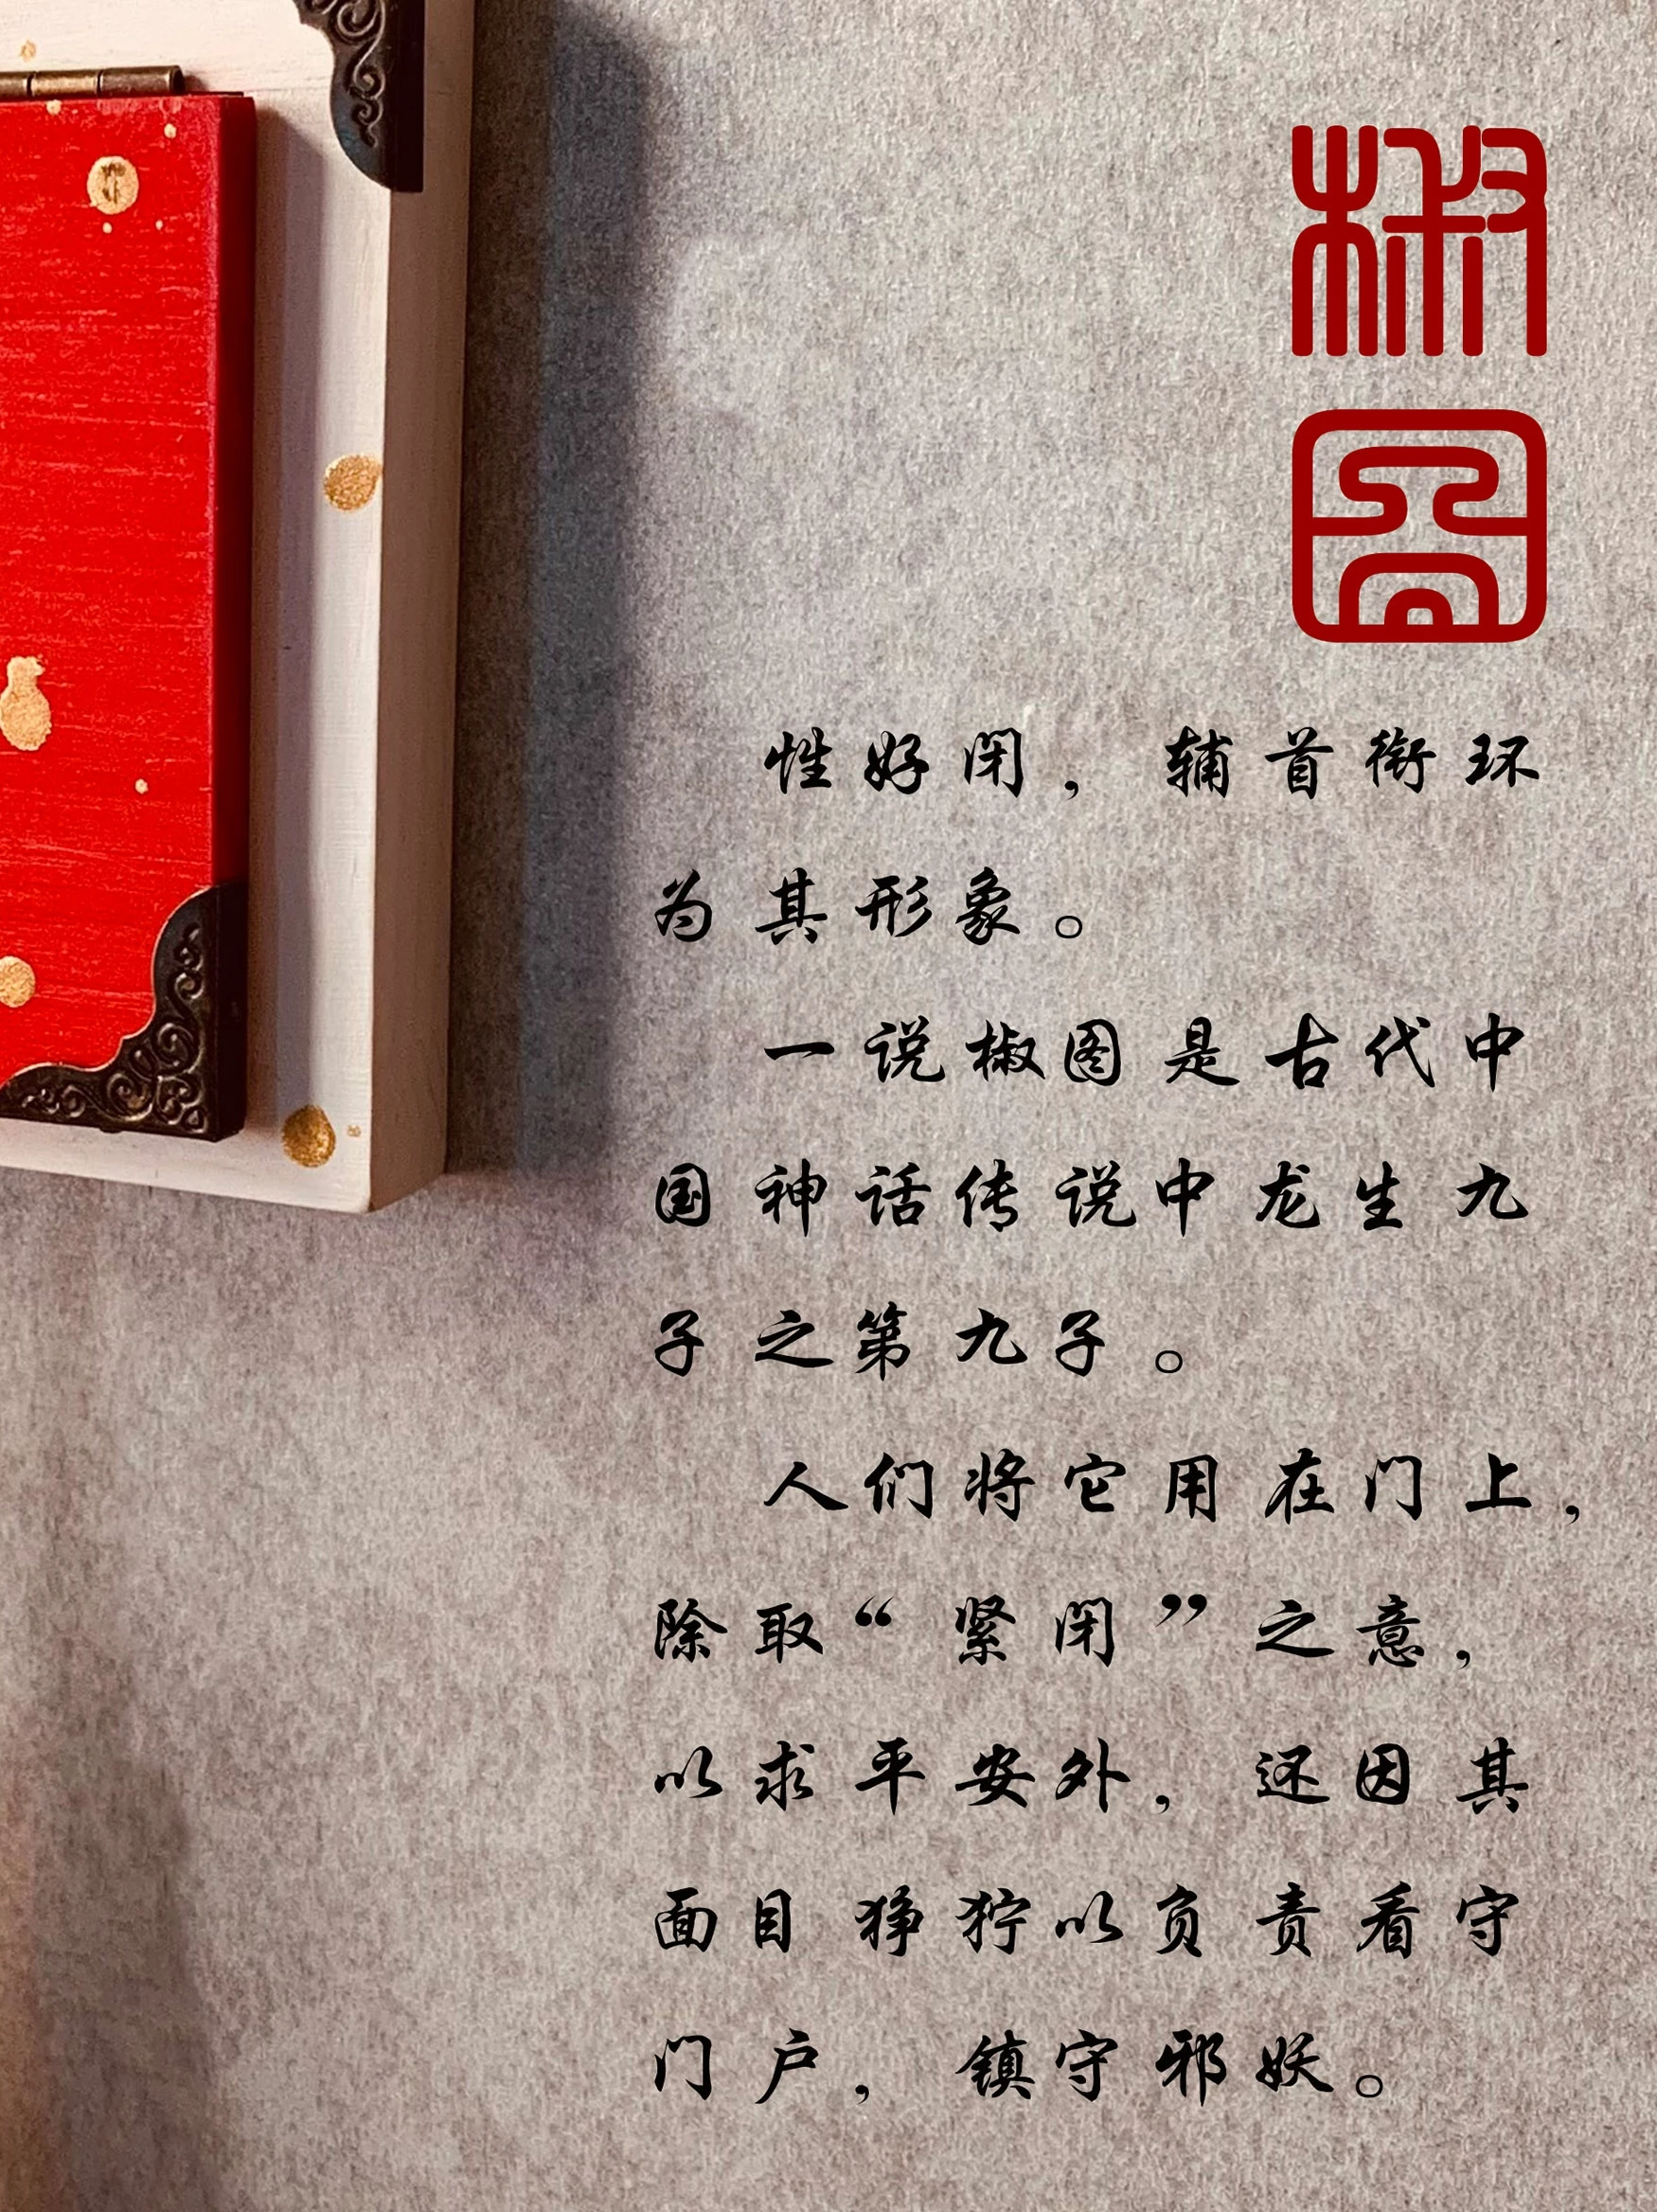 椒
图
性好闭，辅首衔环
为其形象。
一说椒图是古代中
国神话传说中龙生九
子之第九子。
人们将它用在门上，
除取“紧闭”之意，
以求平安外，还因其
面目狰狞以负责看守
门户，镇守邪妖。